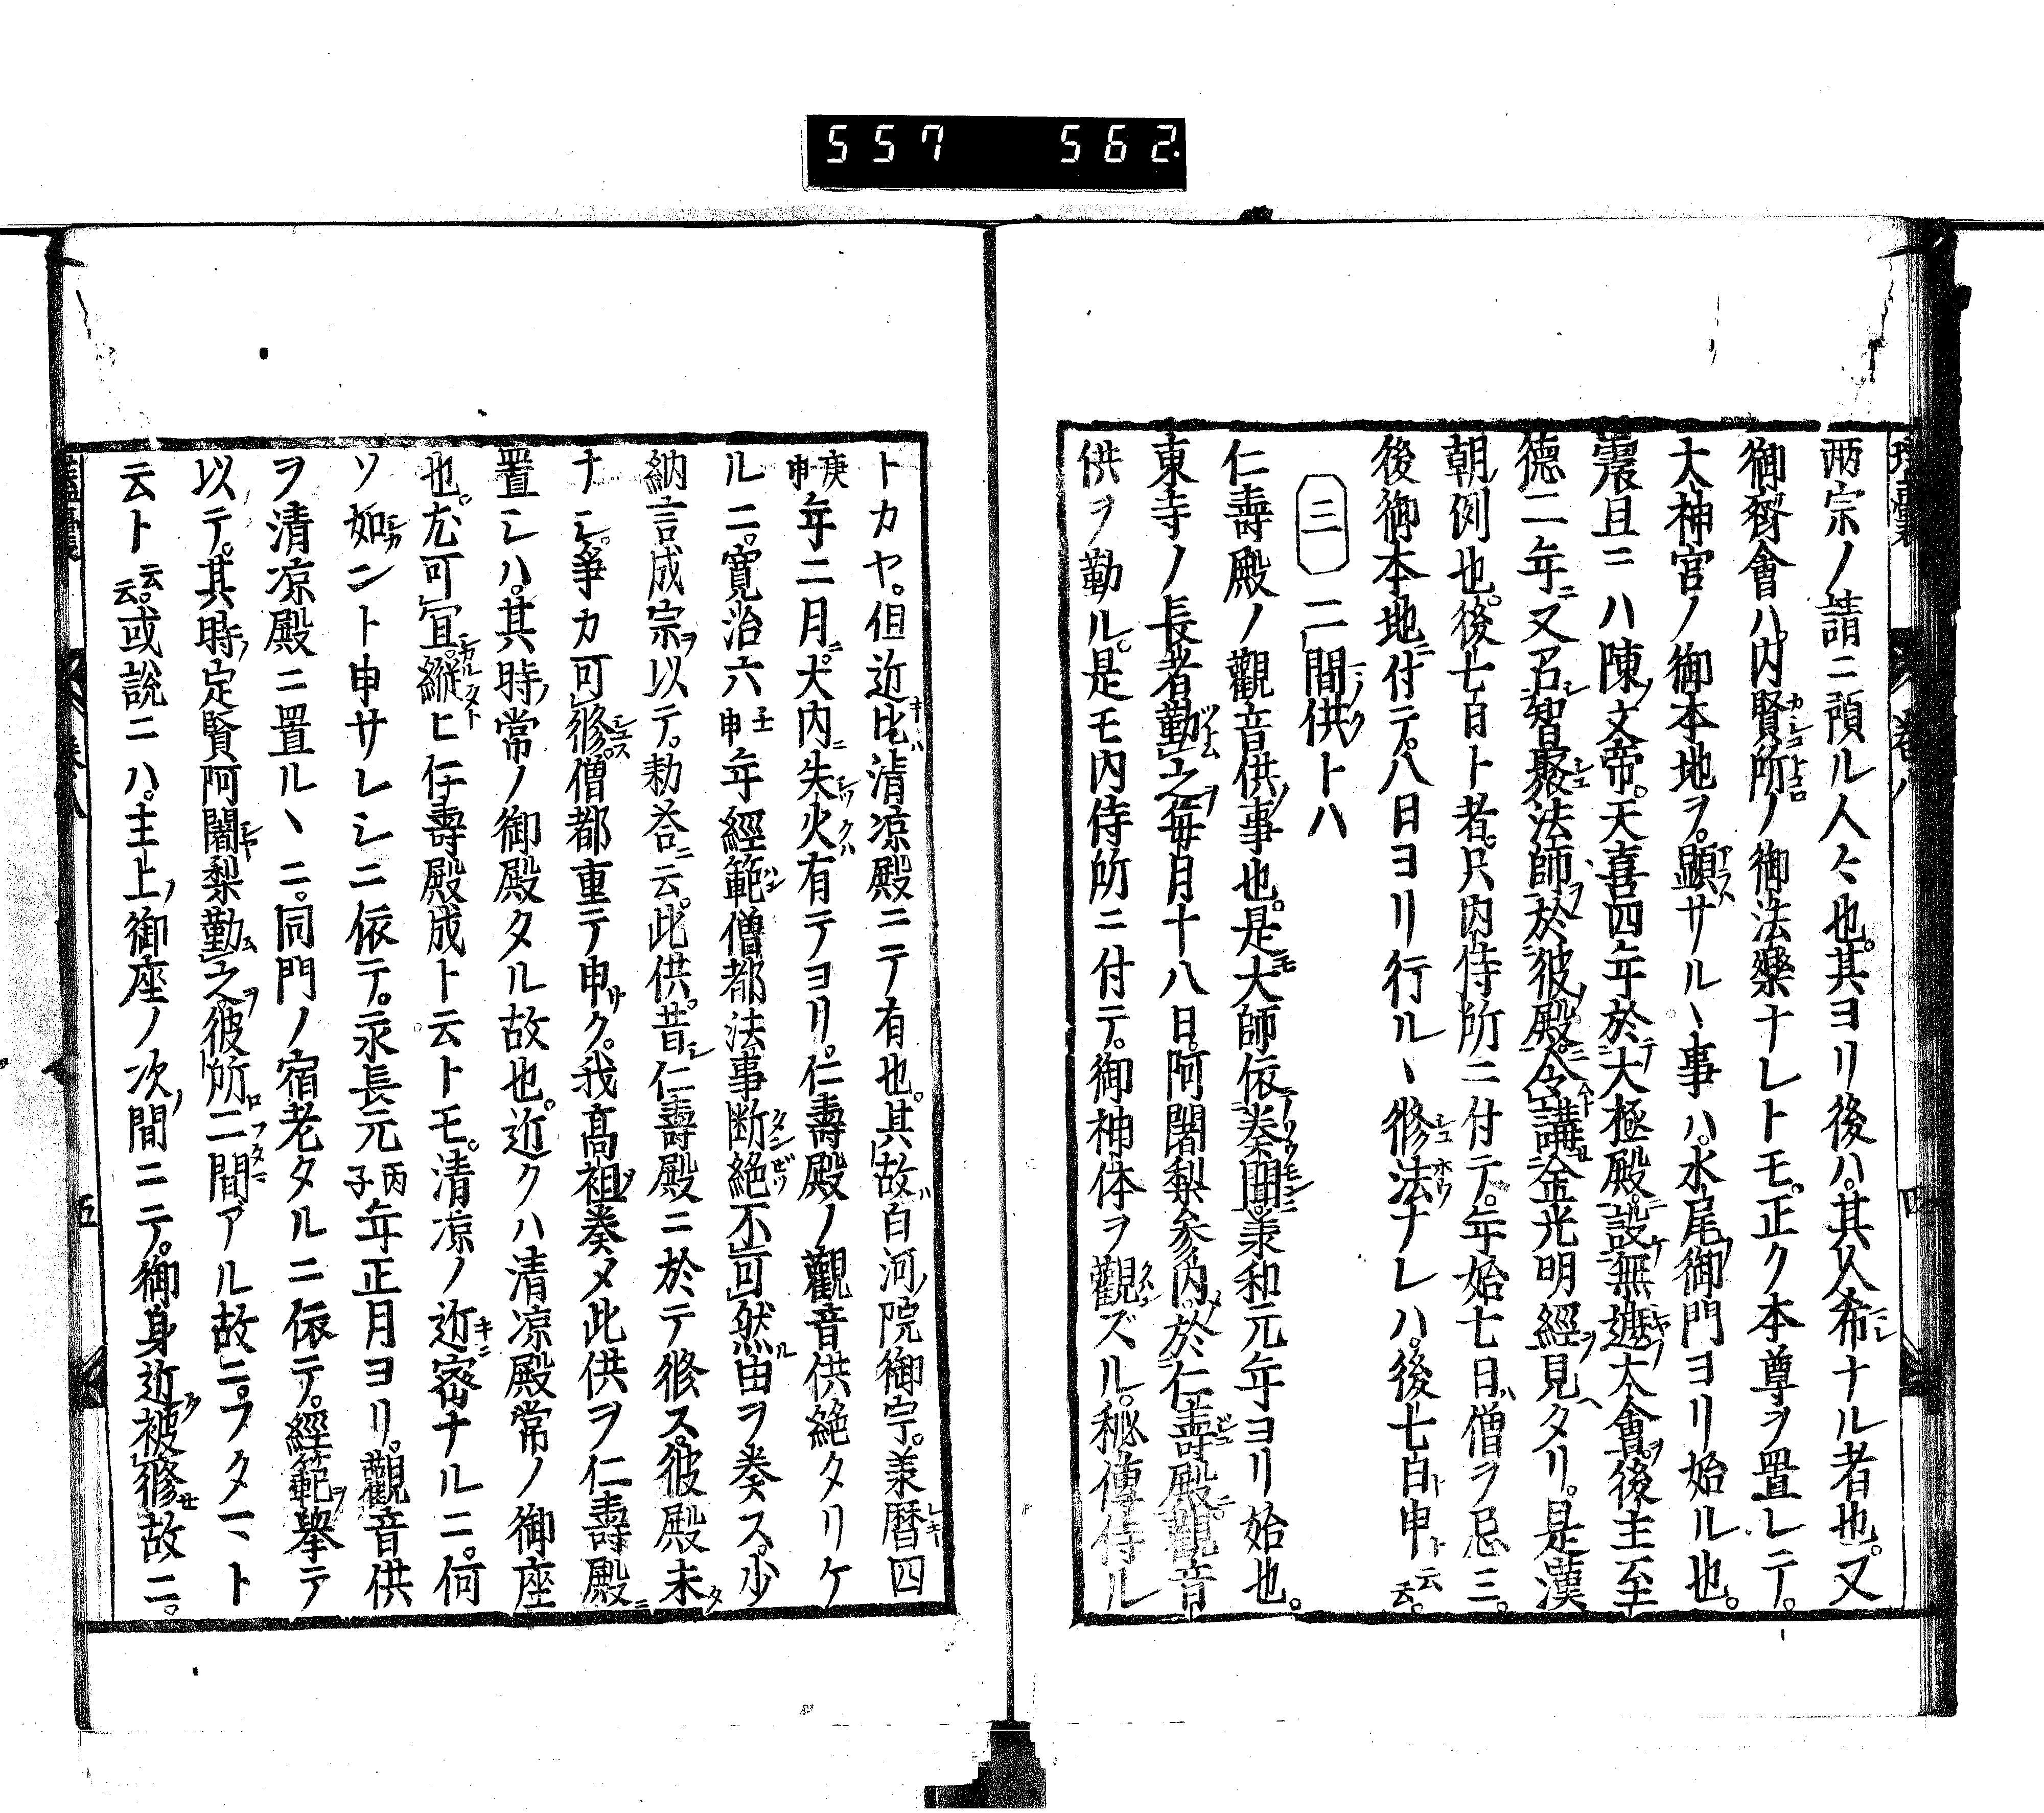 557 562
両宗ノ請ニ預ル人々也。其ヨリ後ハ。其人希ナル者也。又
御齋會ハ。内賢所ノ御法樂ナレトモ。正ク本尊ヲ置レテ。
大神宮ノ御本地ヲ。顕サルヽ事ハ。水尾御門ヨリ始ル也。
震旦ニハ陳文帝。天喜四年於大極殿。設無遮大會。後主至
德二年又召智聚法師於彼殿。令講金光明經見タリ。是漢
朝例也。後七日ト者。只内侍所ニ付テ。年始七日。僧ヲ忌三。
後御本地付テ。八日ヨリ行ルヽ修法ナレハ。後七日申ト云云。
三 二間供トハ
仁壽殿ノ觀音供事也。是大師依奏聞。羕和元年ヨリ始也。
東寺ノ長者勤之毎月十八日。阿闍梨參内。於仁壽殿觀音
供ヲ勤ル。是モ内侍所ニ付テ。御神体ヲ觀ズル。秘傳侍ル
トカヤ。但近比清凉殿ニテ有也。其故白河院御宇。羕暦四
庚申年二月。大内失火有テヨリ。仁壽殿ノ觀音供絶タリケ
ルニ。寛治六壬申年經範僧都法事断絶不可然由ヲ奏ス。少
納言成宗以テ。勅荅云。此供。昔仁壽殿ニ於テ修ス。彼殿未
ナシ。爭カ可修。僧都重テ申ク。我高祖奏メ此供ヲ仁壽殿
置シハ。其時常ノ御殿タル故也。近クハ清凉殿常ノ御座
也。尤可宜。縱ヒ仁壽殿成ト云トモ。清凉ノ近密ナルニ。何
ソ如ント申サレシニ依テ。永長元丙子年正月ヨリ。觀音供
ヲ清凉殿ニ置ルヽニ。同門ノ宿老タルニ依テ。經範擧テ
以テ。其時定賢阿闍梨勤之彼所二間アル故ニ。フタマト
云ト云云。或説ニハ。主上御座ノ次間ニテ。御身近被修故ニ。
巻八
四
巻八
五